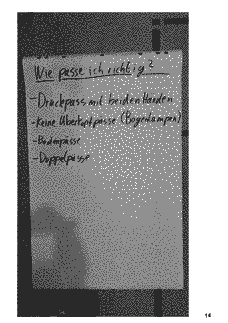 Wie passe ich richtig?
- Druckpass mit beiden Händen
- Keine Überkopfpässe (Bogenlampen)
- Bodenpässe
- Doppelpässe
16